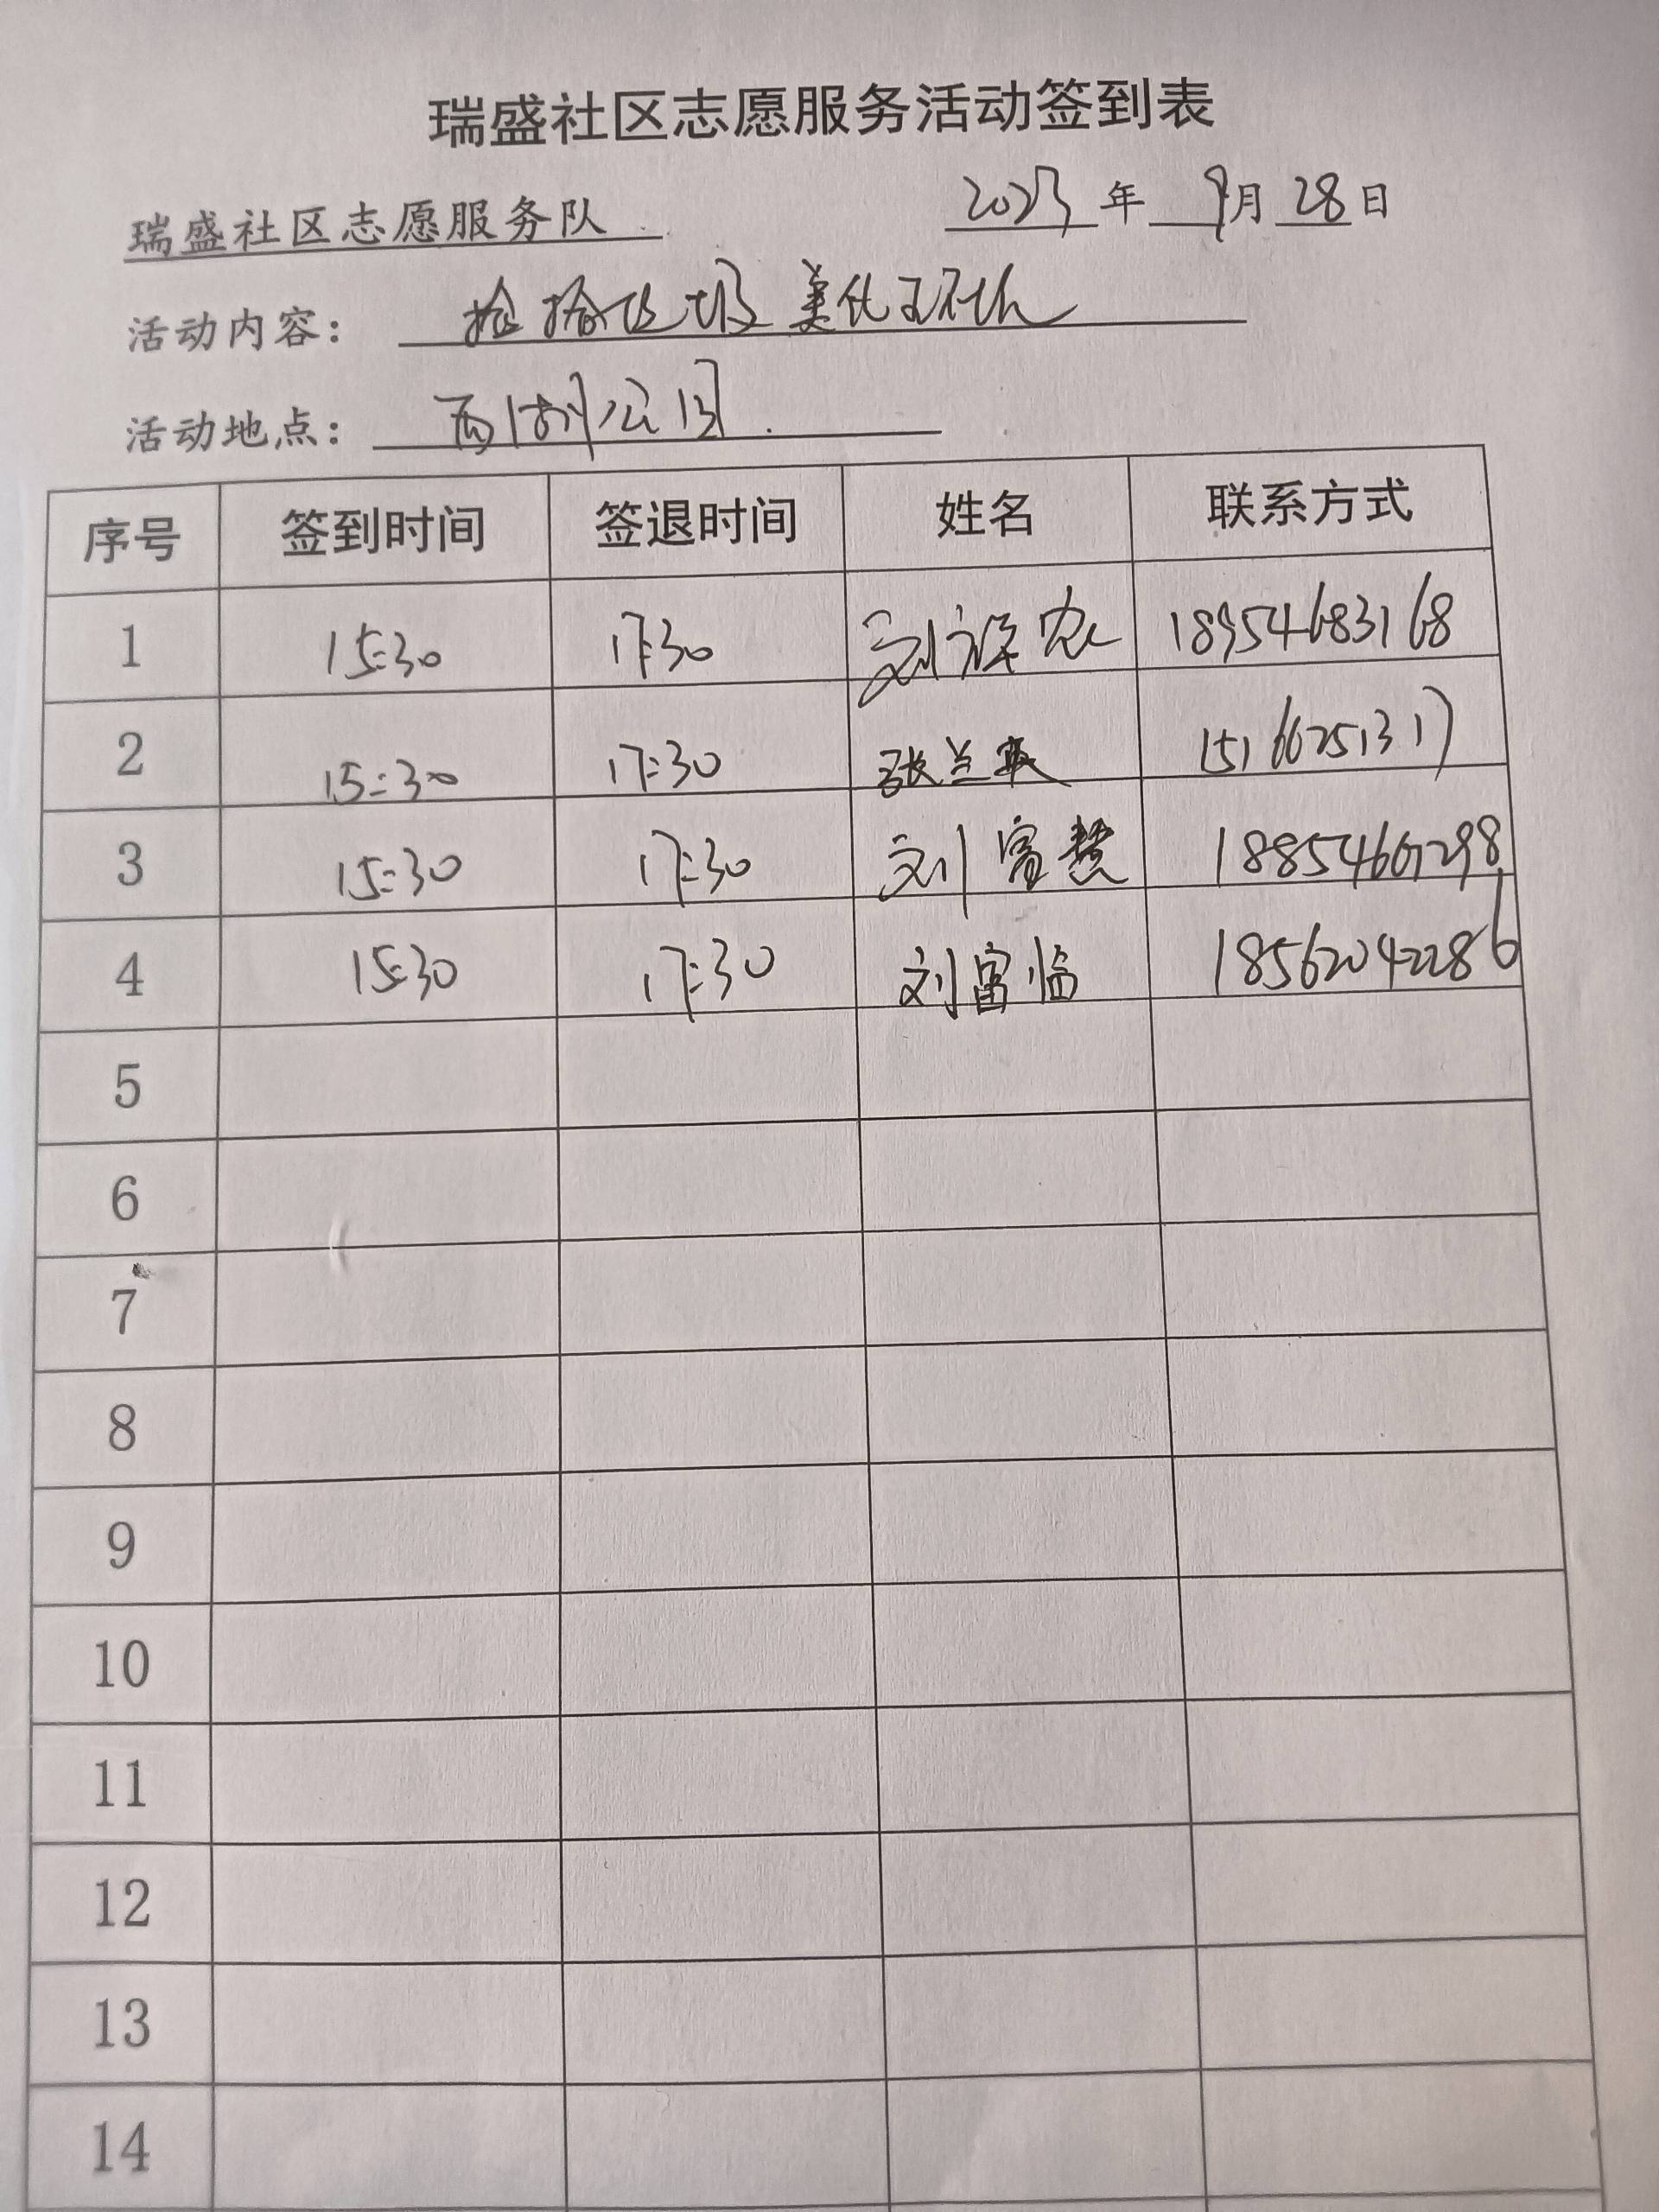 瑞盛社区志愿服务活动签到表
瑞盛社区志愿服务队 2023年 9月28日
活动内容: 捡拾垃圾 美化环境
活动地点: 西湖公园.
序号 签到时间 签退时间 姓名 联系方式
1 15:30 17:30 刘 18954683168
2 15:30 17:30 张兰英 15166251317
3 15:30 17:30 刘富慧 18854607298
4 15:30 17:30 刘富临 18562042286
5
6
7
8
9
10
11
12
13
14